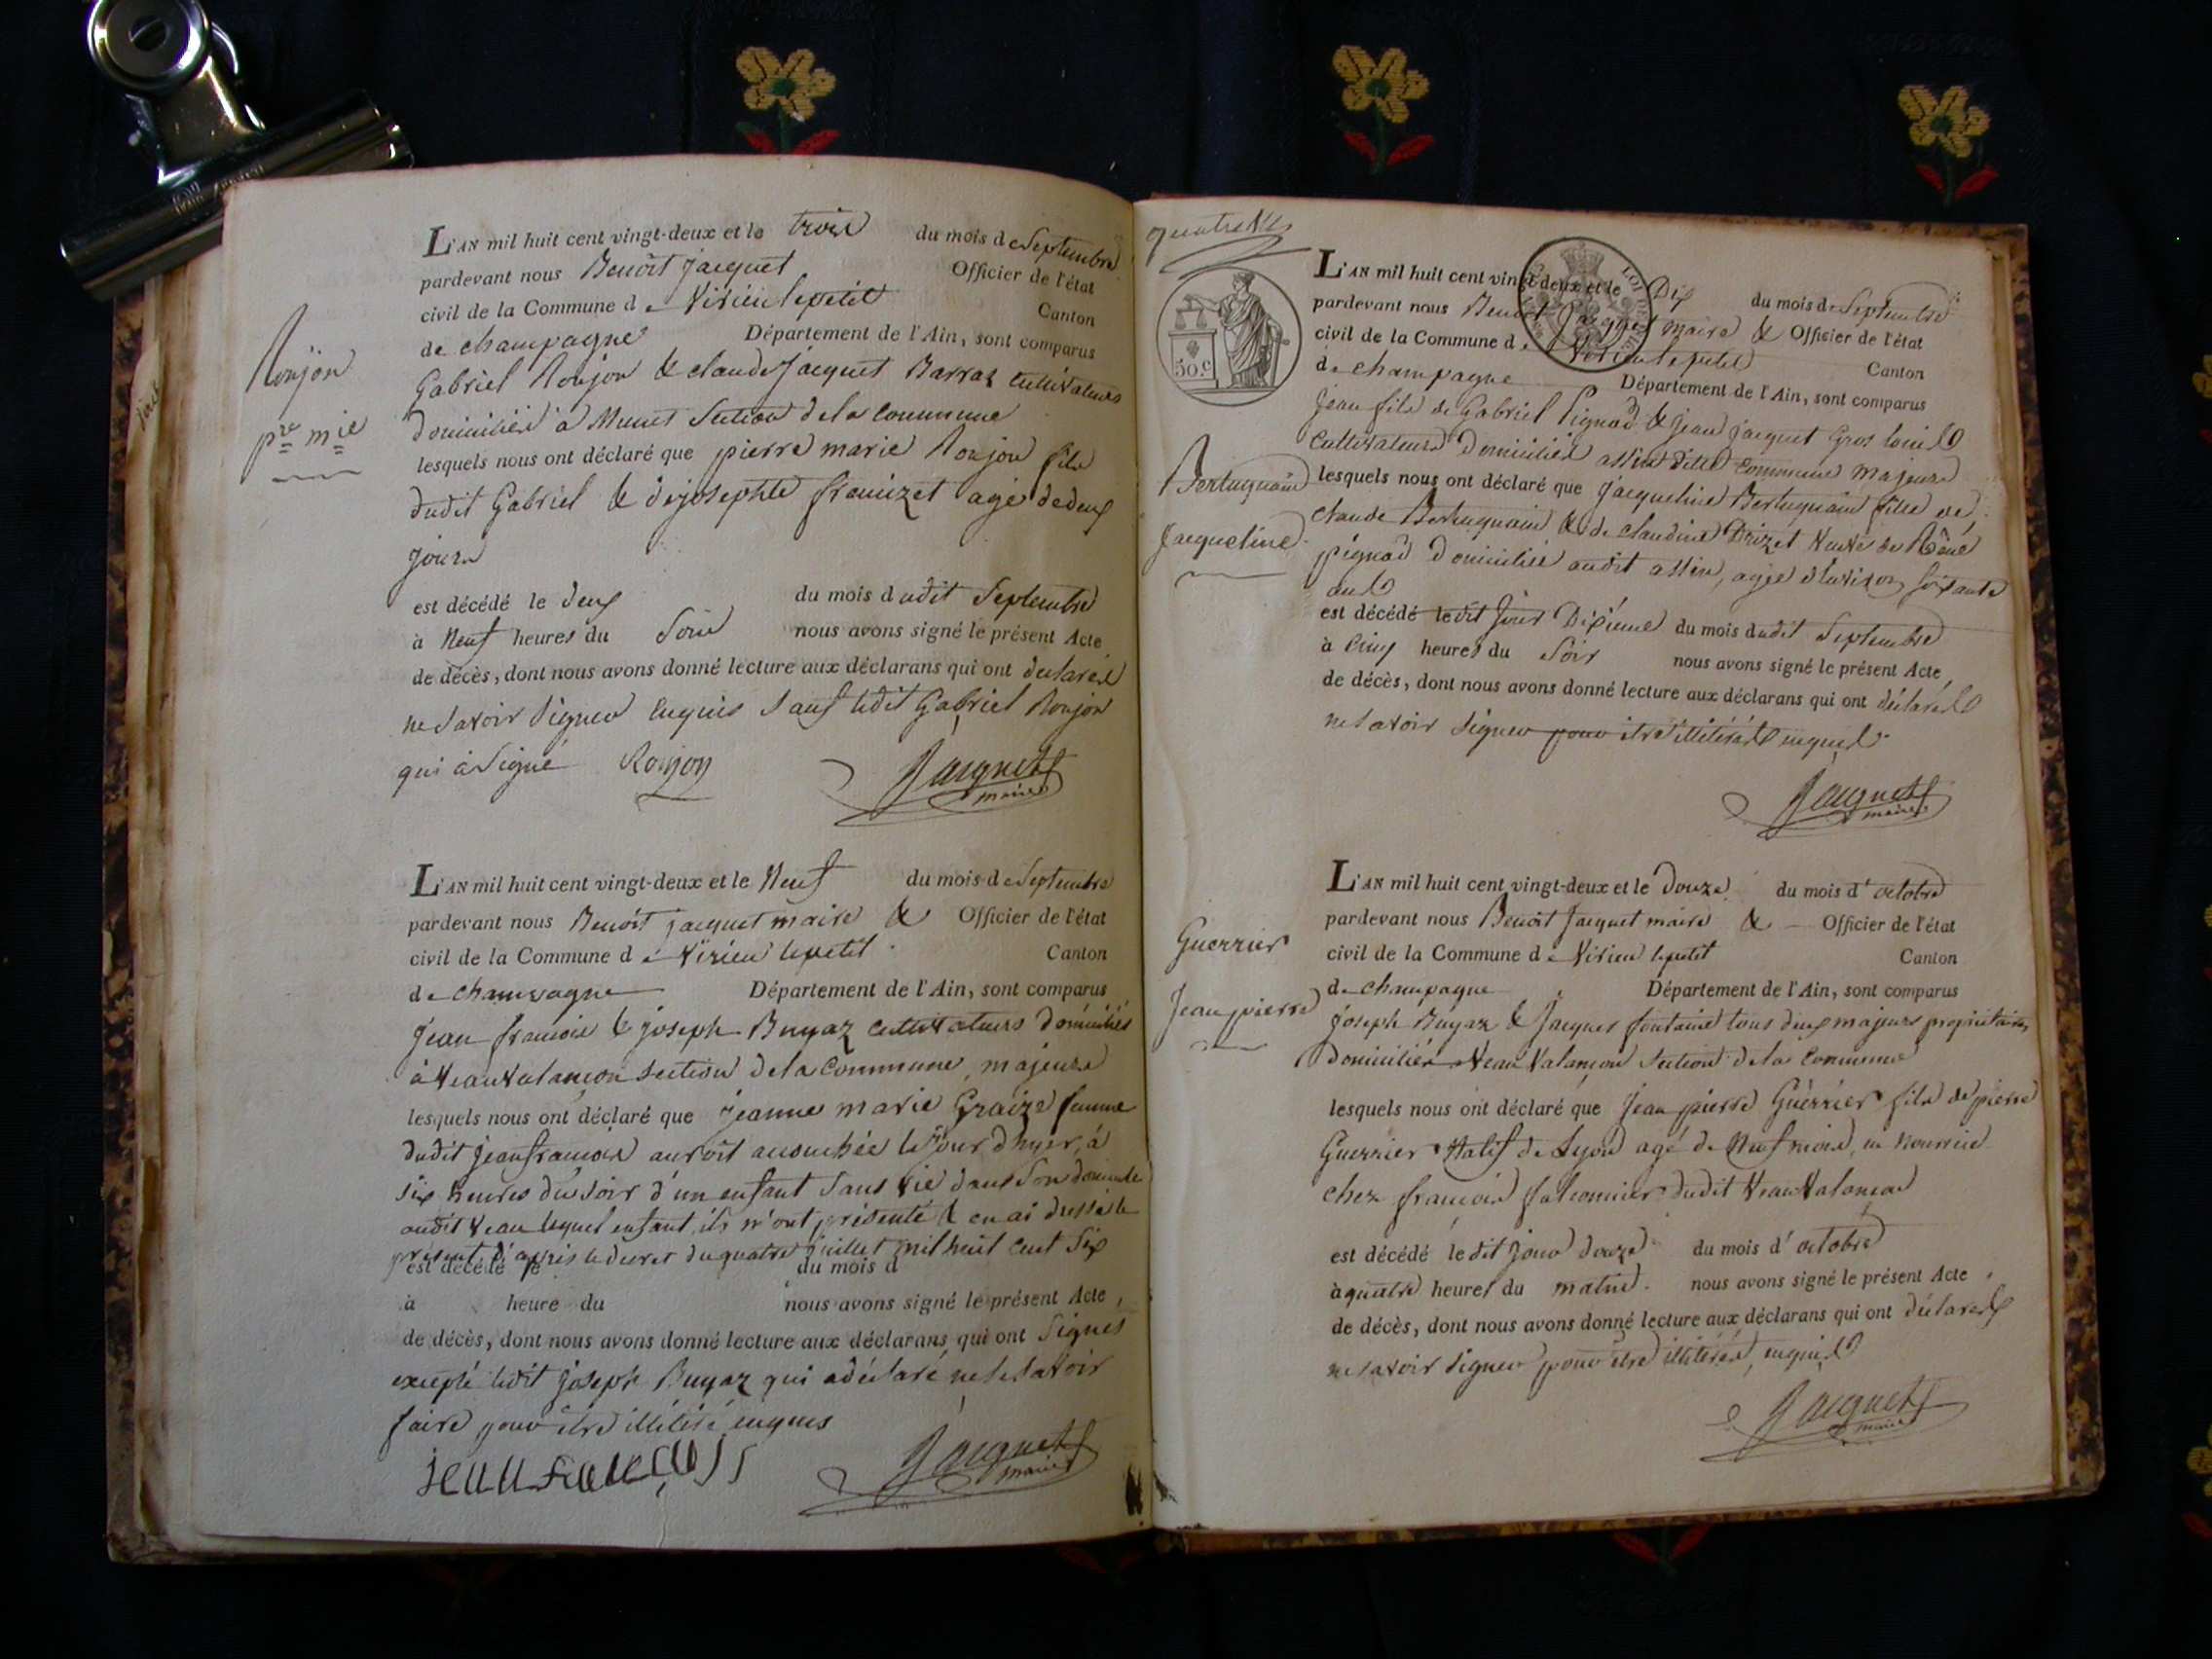 L'AN mil huit cent vingt-deux et le trois du mois de Septembre
pardevant nous Benoît Jacquet Officier de l'état
civil de la Commune de Virieu le petit Canton
de champagne Département de l'Ain, sont comparus
Gabriel Roujon & claude Jacquet Barraz cultivateurs
domiciliés à Munet Section de la Commune
lesquels nous ont déclaré que pierre marie Roujon fils
dudit Gabriel & de josephte agé de deux
jours
est décédé le deux du mois dudit Septembre
à Neuf heures du Soir nous avons signé le présent Acte
de décès, dont nous avons donné lecture aux déclarans qui ont déclarés
ne Savoir Signer Enquis Sauf ledit Gabriel Roujon
qui à Signé Roujon Jacquet
maire
Roujon
pre mie
L'AN mil huit cent vingt-deux et le Neuf du mois de Septembre
pardevant nous Benoit jacquet maire & Officier de l'état
civil de la Commune de Virieu le petit Canton
de champagne Département de l'Ain, sont comparus
Jean françois & joseph Buyaz cultivateurs domiciliés
à Veauvalançon Section de la Commune, majeurs
lesquels nous ont déclaré que jeanne marie femme
dudit jean françois auroit accouchée le jour d'hyer, à
six heures du soir d'un enfant Sans vie dans Son domicile
audit Veau lequel enfant ils m'ont présenté & en ai dressé le
présent d'après le decret du quatre juillet mil huit cent Six
est décédé le du mois d
à heure du nous avons signé le présent Acte,
de décès, dont nous avons donné lecture aux déclarans qui ont Signés
excepté ledit joseph Buyaz qui a déclaré ne le Savoir
faire pour être illitéré enquis
jean francois Jacquet
maire
quatre
50 c
L'AN mil huit cent vingt-deux et le Dix du mois de Septembre
pardevant nous Benoit Jacquet maire & Officier de l'état
civil de la Commune de Virieu le petit Canton
de champagne Département de l'Ain, sont comparus
jean fils de Gabriel Pignod & jean jacquet Gros
Cultivateurs Domiciliés assin dite Commune majeurs
lesquels nous ont déclaré que jacqueline Bertuquain fille de
claude Bertuquain & de claudine Drizet Veuve de Réné
pignod Domiciliée audit assin, agée d'environ soixante
ans
est décédé le dit jour Dixième du mois dudit Septembre
à Cinq heures du Soir nous avons signé le présent Acte
de décès, dont nous avons donné lecture aux déclarans qui ont déclarés
ne Savoir Signer pour être illitérés enquis
Jacquet
maire
Bertuquain
Jacqueline
L'AN mil huit cent vingt-deux et le Douze du mois d'octobre
pardevant nous Benoit Jacquet maire & Officier de l'état
civil de la Commune de Virieu le petit Canton
de champagne Département de l'Ain, sont comparus
joseph Buyaz & Jacques fontaine tous deux majeurs propriétaires
domiciliés Veau Valançon Section de la Commune
lesquels nous ont déclaré que Jean pierre Guerrier fils de pierre
Guerrier Natif de Lyon agé de Neuf mois, en Nourrice
chez françois falconnier dudit Veau Valançon
est décédé le dit jour douze du mois d'octobre
à quatre heures du matin. nous avons signé le présent Acte,
de décès, dont nous avons donné lecture aux déclarans qui ont déclarés
ne savoir signer pour être illitérés, enquis
Jacquet
maire
Guerrier
Jean pierre